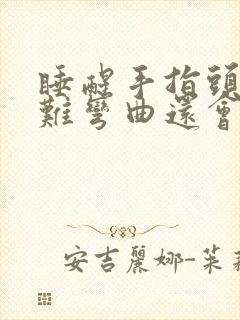 睡醒手指頭
難彎曲還會
安吉麗娜-茱莉